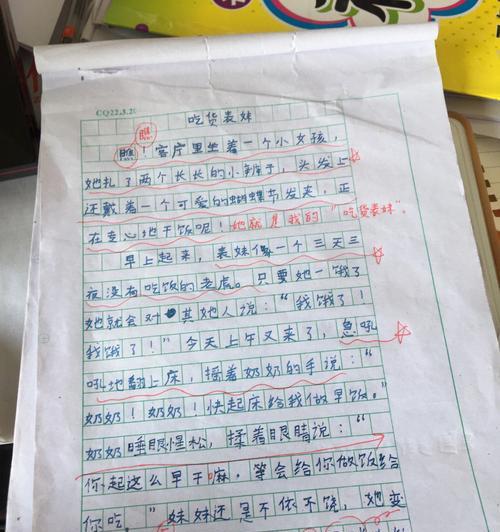 CQ22.3.20
吃货表妹
瞧
瞧！客厅里坐着一个小女孩，
她扎了两个长长的小辫子，头发上
还戴着一个可爱的蝴蝶节发夹，正
在专心地干饭呢！她就是我的“吃货表妹”。
早上起来，表妹像一个三天三
夜没有吃饭的老虎。只要她一饿了
她就会对其她人说：“我饿了！
我饿了！”今天上午又来了，急吼
吼地翻上床，摇着奶奶的手说：“
奶奶！奶奶！快起床给我做早饭。”
奶奶睡眼惺松，揉着眼睛说：“
你起这么早干嘛，等会给你做饭给
你吃。”妹妹还是不依不饶，她变